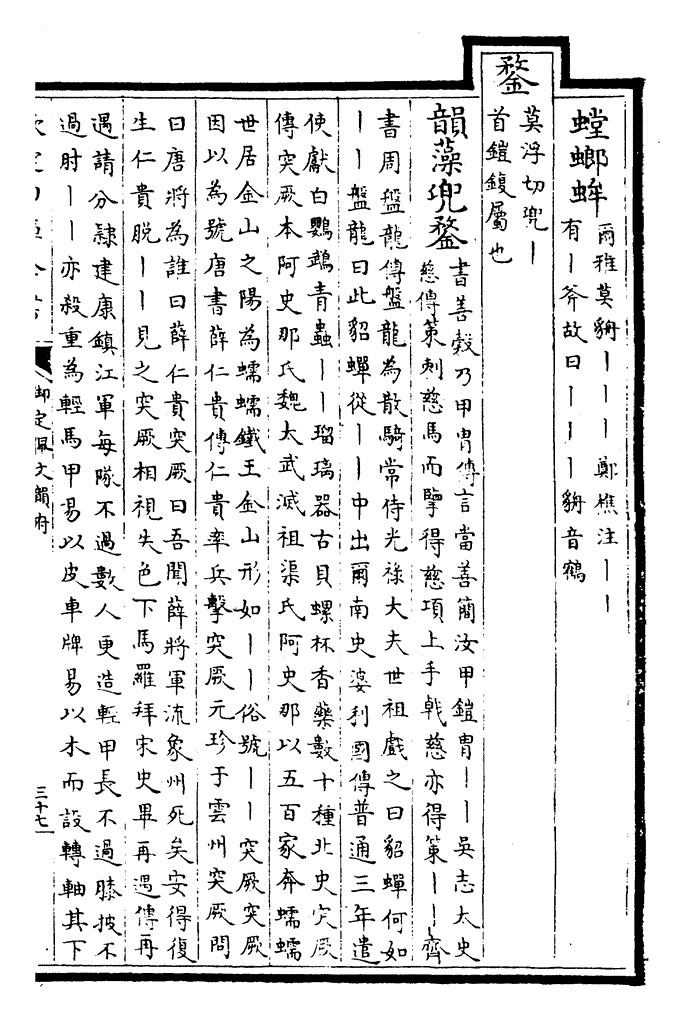 螳螂蛑
爾雅莫貈丨丨丨鄭樵注丨丨
有丨斧故曰丨丨丨貈音鶴
鍪
莫浮切兜丨
首鎧鍑屬也
韻藻兜鍪
書善敹乃甲胄傳言當善簡汝甲鎧胄丨丨吳志太史
慈傳策刺慈馬而擥得慈項上手戟慈亦得策丨丨齊
書周盤龍傳盤龍為散騎常侍光祿大夫世祖戲之曰貂蟬何如
丨丨盤龍曰此貂蟬從丨丨中出爾南史婆利國傳普通三年遣
使獻白鸚鵡青蟲丨丨瑠璃器古貝螺杯香藥數十種北史突厥
傳突厥本阿史那氏魏太武滅祖渠氏阿史那以五百家奔蠕蠕
世居金山之陽為蠕蠕鐵王金山形如丨丨俗號丨丨突厥突厥
因以為號唐書薛仁貴傳仁貴率兵擊突厥元珍于雲州突厥問
曰唐將為誰曰薛仁貴突厥曰吾聞薛將軍流象州死矣安得復
生仁貴脫丨丨見之突厥相視失色下馬羅拜宋史畢再遇傳再
遇請分隸建康鎮江軍每隊不過數人更造輕甲長不過膝披不
過肘丨丨亦殺重為輕馬甲易以皮車牌易以木而設轉軸其下
御定佩文韻府
三十七